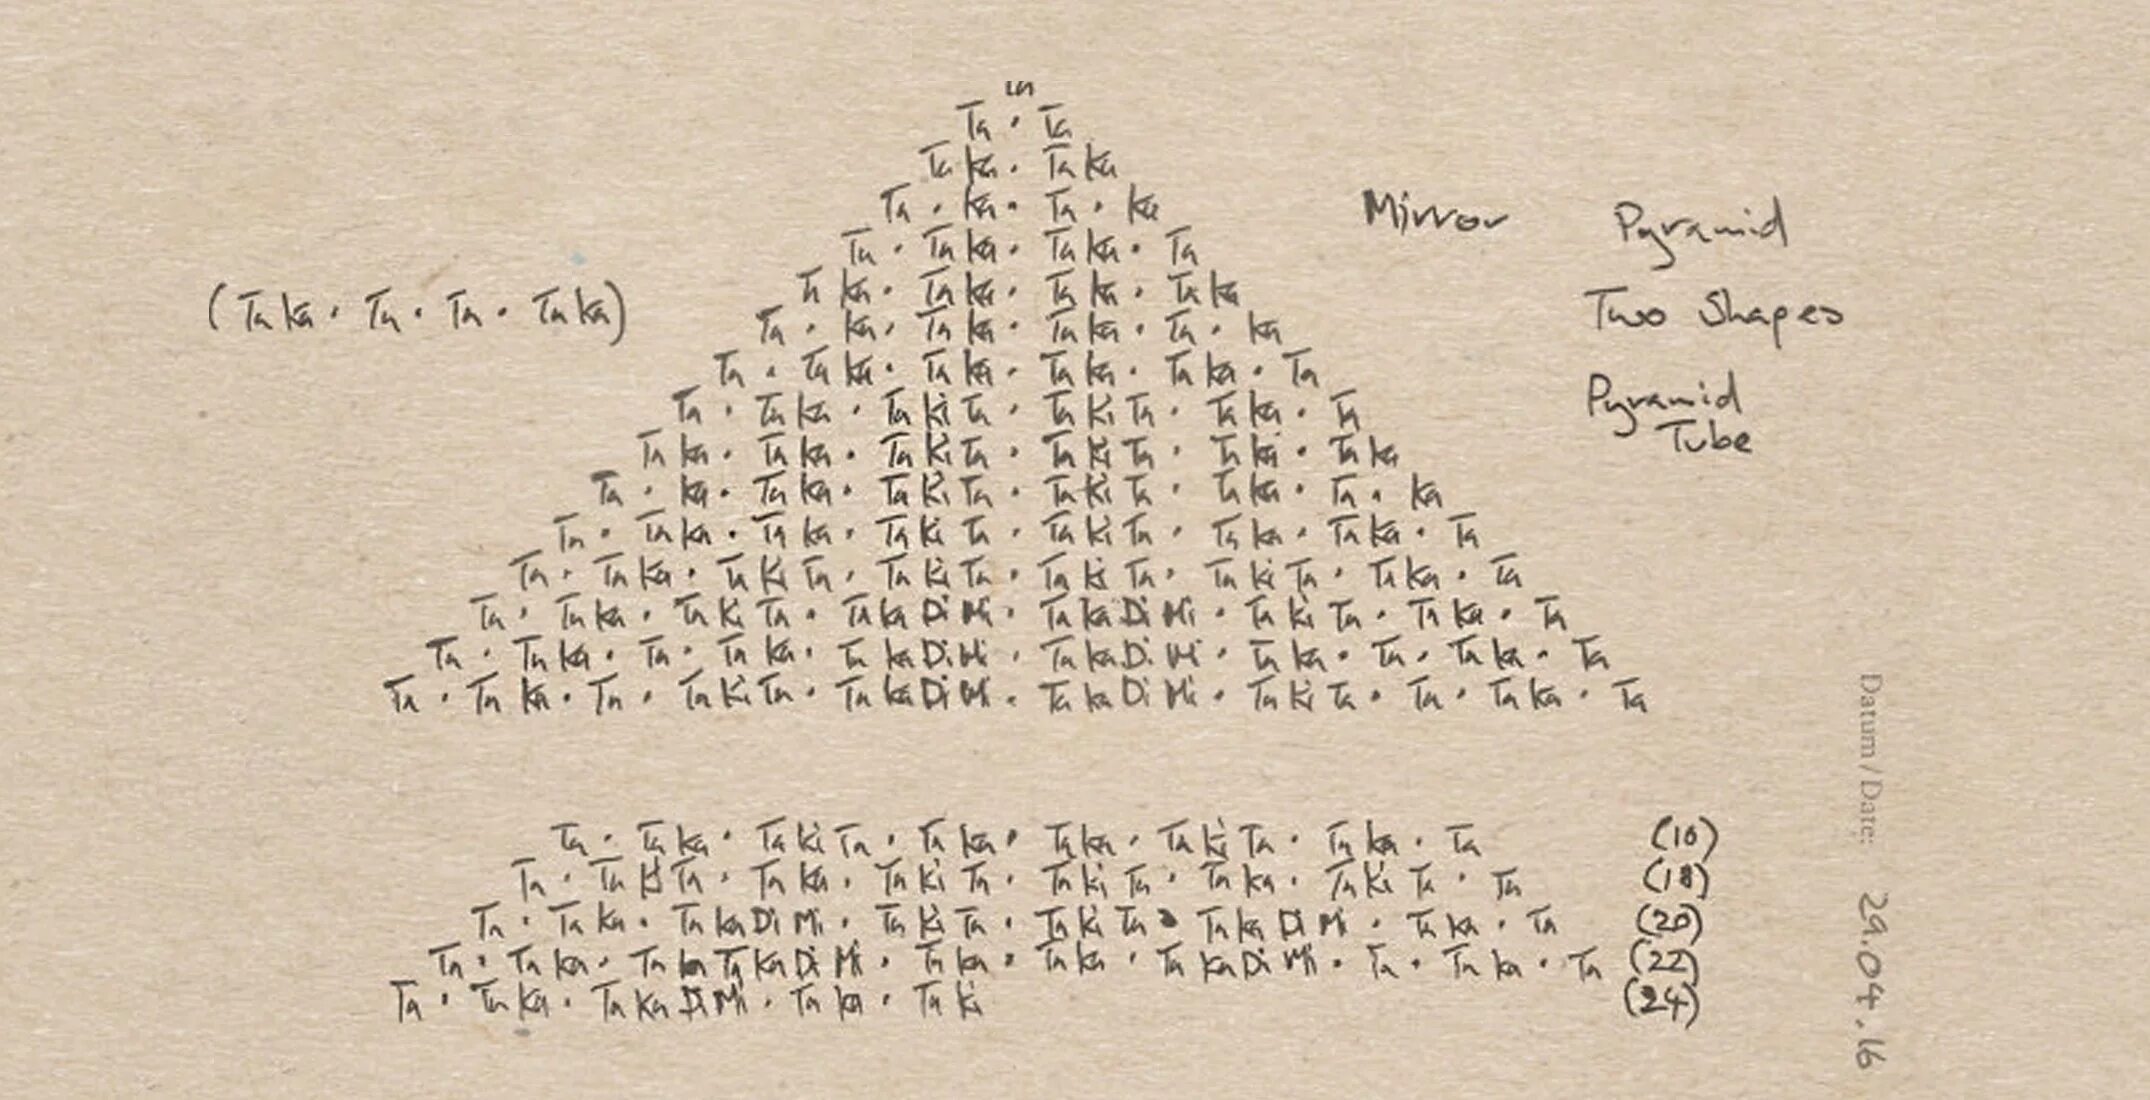 Ta
Ta · Ta
Ta ka · Ta ka
Ta · ka · Ta · ka
Ta · Ta ka · Ta ka · Ta
Ta ka · Ta ka · Ta ka · Ta ka
Ta · ka · Ta ka · Ta ka · Ta · ka
Ta · Ta ka · Ta ka · Ta ka · Ta ka · Ta
Ta · Ta ka · Ta Ki Ta · Ta Ki Ta · Ta ka · Ta
Ta ka · Ta ka · Ta Ki Ta · Ta Ki Ta · Ta ka · Ta ka
Ta · ka · Ta ka · Ta Ki Ta · Ta Ki Ta · Ta ka · Ta · ka
Ta · Ta ka · Ta ka · Ta Ki Ta · Ta Ki Ta · Ta ka · Ta ka · Ta
Ta · Ta ka · Ta Ki Ta · Ta Ki Ta · Ta ki Ta · Ta ki Ta · Ta ka · Ta
Ta · Ta ka · Ta Ki Ta · Ta ka Di Mi · Ta ka Di Mi · Ta Ki Ta · Ta ka · Ta
Ta · Ta ka · Ta · Ta ka · Ta ka Di Mi · Ta ka Di Mi · Ta ka · Ta · Ta ka · Ta
Ta · Ta ka · Ta · Ta Ki Ta · Ta ka Di Mi · Ta ka Di Mi · Ta Ki Ta · Ta · Ta ka · Ta
(Ta ka · Ta · Ta · Ta ka)
Mirror Pyramid
Two Shapes
Pyramid
Tube
Ta · Ta ka · Ta Ki Ta · Ta ka · Ta ka · Ta Ki Ta · Ta ka · Ta (16)
Ta · Ta Ki Ta · Ta ka · Ta Ki Ta · Ta ki Ta · Ta ka · Ta Ki Ta · Ta (18)
Ta · Ta ka · Ta ka Di Mi · Ta Ki Ta · Ta Ki Ta · Ta ka Di Mi · Ta ka · Ta (20)
Ta · Ta ka · Ta Ta ka Di Mi · Ta ka · Ta ka · Ta ka Di Mi · Ta · Ta ka · Ta (22)
Ta · Ta ka · Ta ka Di Mi · Ta ka · Ta ki (24)
Datum / Date: 29.04.16